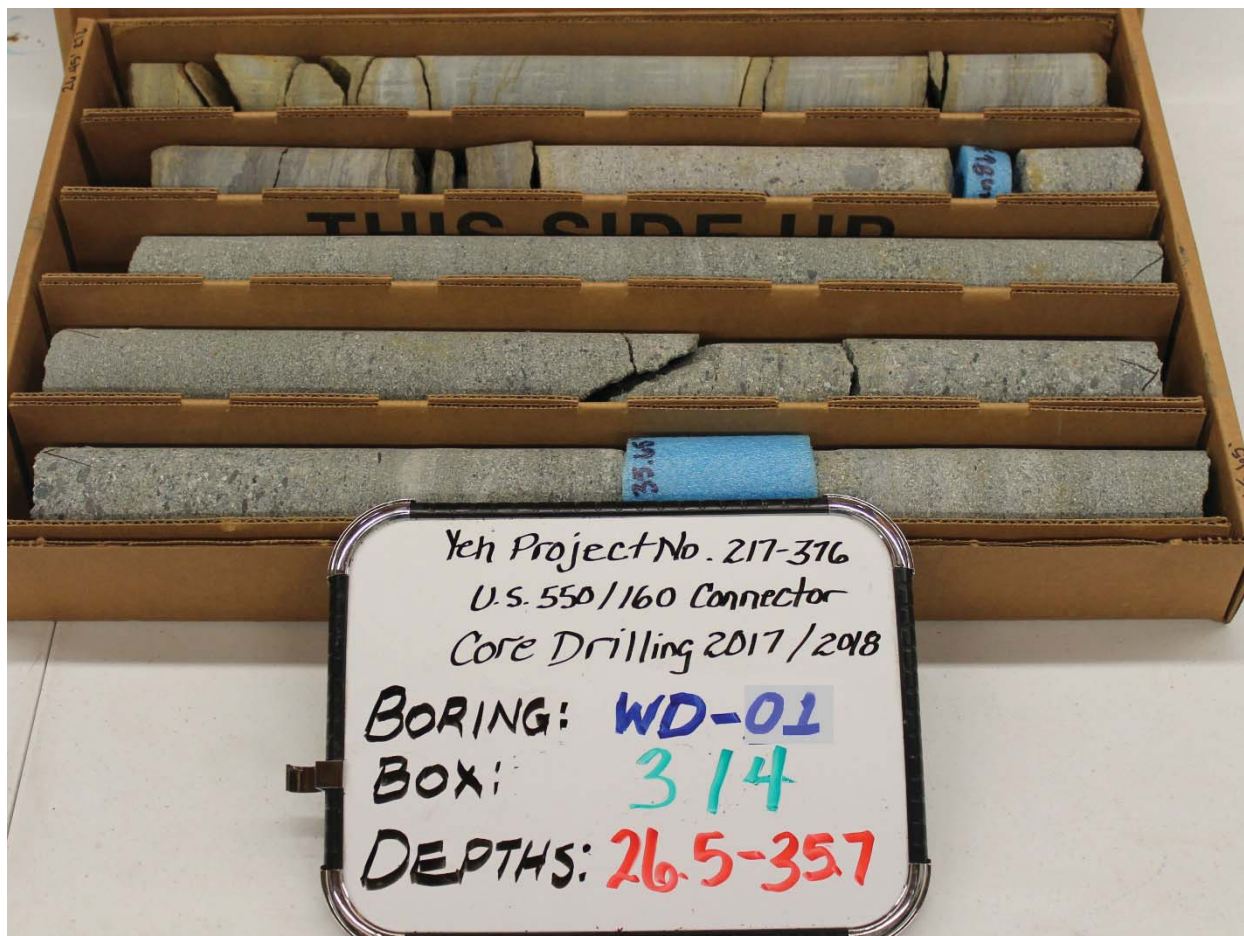 THIS SIDE UP
35.65
Yeh Project No. 217-376
U.S. 550/160 Connector
Core Drilling 2017/2018
BORING: WD-01
BOX: 3/4
DEPTHS: 26.5-35.7